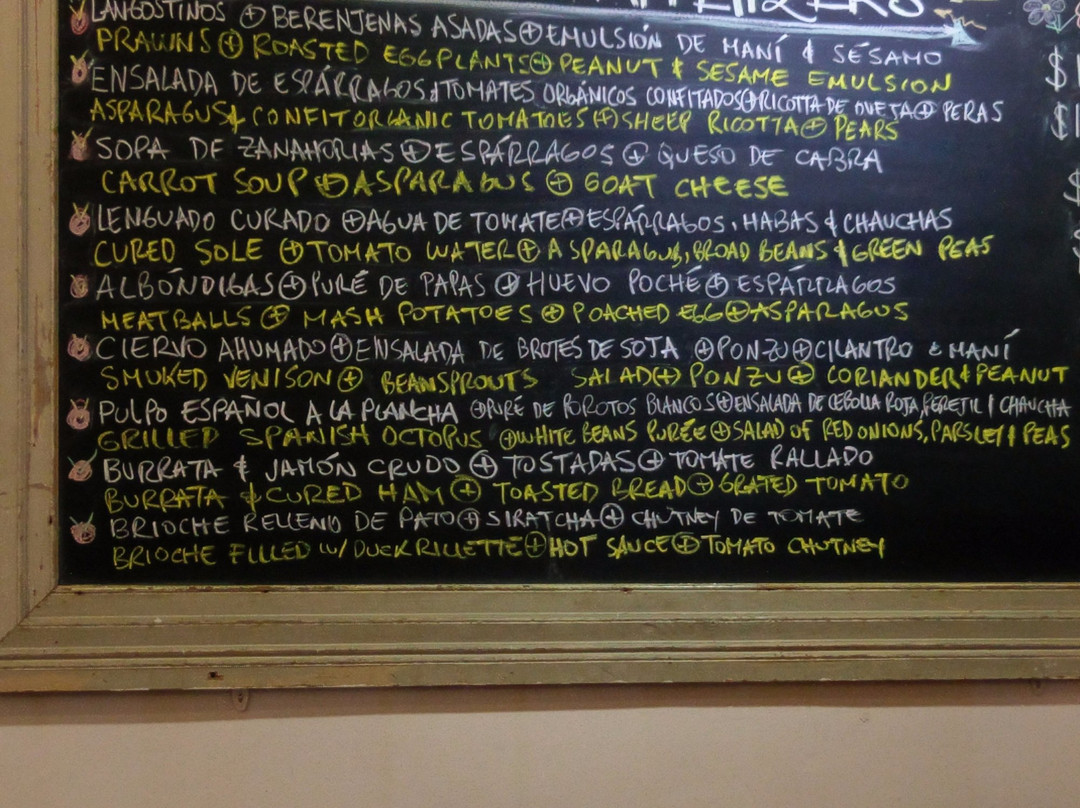 LANGOSTINOS ⊕ BERENJENAS ASADAS ⊕ EMULSIÓN DE MANÍ & SÉSAMO
PRAWNS ⊕ ROASTED EGGPLANTS ⊕ PEANUT & SESAME EMULSION
ENSALADA DE ESPÁRRAGOS & TOMATES ORGÁNICOS CONFITADOS ⊕ RICOTTA DE OVEJA ⊕ PERAS
ASPARAGUS & CONFIT ORGANIC TOMATOES ⊕ SHEEP RICOTTA ⊕ PEARS
SOPA DE ZANAHORIAS ⊕ ESPÁRRAGOS ⊕ QUESO DE CABRA
CARROT SOUP ⊕ ASPARAGUS ⊕ GOAT CHEESE
LENGUADO CURADO ⊕ AGUA DE TOMATE ⊕ ESPÁRRAGOS, HABAS & CHAUCHAS
CURED SOLE ⊕ TOMATO WATER ⊕ ASPARAGUS, BROAD BEANS & GREEN PEAS
ALBÓNDIGAS ⊕ PURÉ DE PAPAS ⊕ HUEVO POCHÉ ⊕ ESPÁRRAGOS
MEATBALLS ⊕ MASH POTATOES ⊕ POACHED EGG ⊕ ASPARAGUS
CIERVO AHUMADO ⊕ ENSALADA DE BROTES DE SOJA ⊕ PONZU ⊕ CILANTRO & MANÍ
SMOKED VENISON ⊕ BEANSPROUTS SALAD ⊕ PONZU ⊕ CORIANDER & PEANUT
PULPO ESPAÑOL A LA PLANCHA ⊕ PURÉ DE POROTOS BLANCOS ⊕ ENSALADA DE CEBOLLA ROJA, PEREJIL & CHAUCHA
GRILLED SPANISH OCTOPUS ⊕ WHITE BEANS PURÉE ⊕ SALAD OF RED ONIONS, PARSLEY & PEAS
BURRATA & JAMÓN CRUDO ⊕ TOSTADAS ⊕ TOMATE RALLADO
BURRATA & CURED HAM ⊕ TOASTED BREAD ⊕ GRATED TOMATO
BRIOCHE RELLENO DE PATO ⊕ SIRATCHA ⊕ CHUTNEY DE TOMATE
BRIOCHE FILLED W/ DUCK RILLETTE ⊕ HOT SAUCE ⊕ TOMATO CHUTNEY